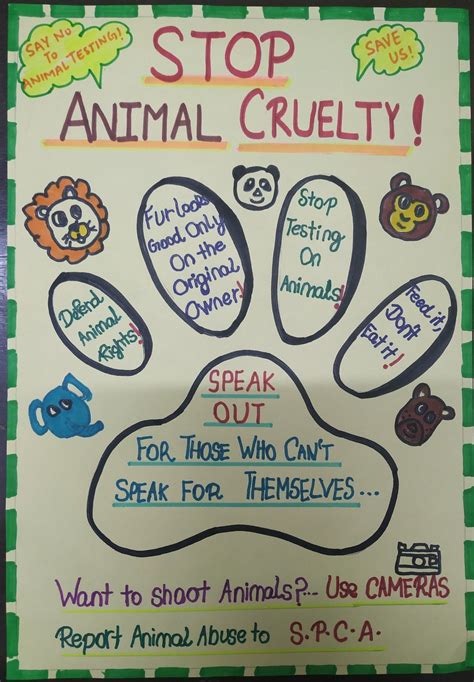 SAY NO
TO
ANIMAL TESTING!
STOP
SAVE
US!
ANIMAL CRUELTY!
Fur Looks
Good Only
On the
Original
Owner!
Stop
Testing
On
Animals!
Defend
Animal
Rights!
Feed it,
Don't
Eat it!
SPEAK
OUT
FOR THOSE WHO CAN'T
SPEAK FOR THEMSELVES...
Want to shoot Animals?... Use CAMERAS
Report Animal Abuse to S.P.C.A.